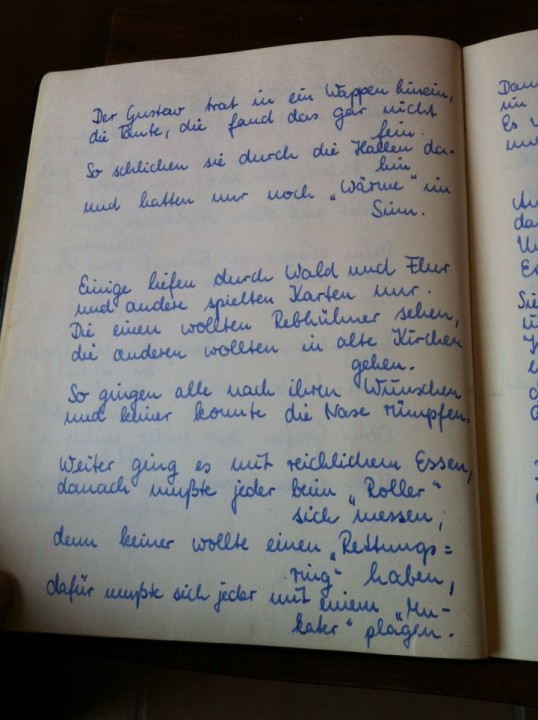 Der Gustav trat in ein Wappen hinein,
die Tante, die fand das gar nicht
fein.
So schlichen sie durch die Hallen da-
hin
und hatten nur noch „Wärme" im
Sinn.
Einige liefen durch Wald und Flur
und andere spielten Karten nur.
Die einen wollten Rebhühner sehen,
die anderen wollten in alte Kirchen
gehen.
So gingen alle nach ihren Wünschen
und keiner konnte die Nase rümpfen.
Weiter ging es mit reichlichem Essen,
danach mußte jeder beim „Roller"
sich messen;
denn keiner wollte einen „Rettungs=
ring" haben,
dafür mußte sich jeder mit einem „Mu-
kater" plagen.
Es